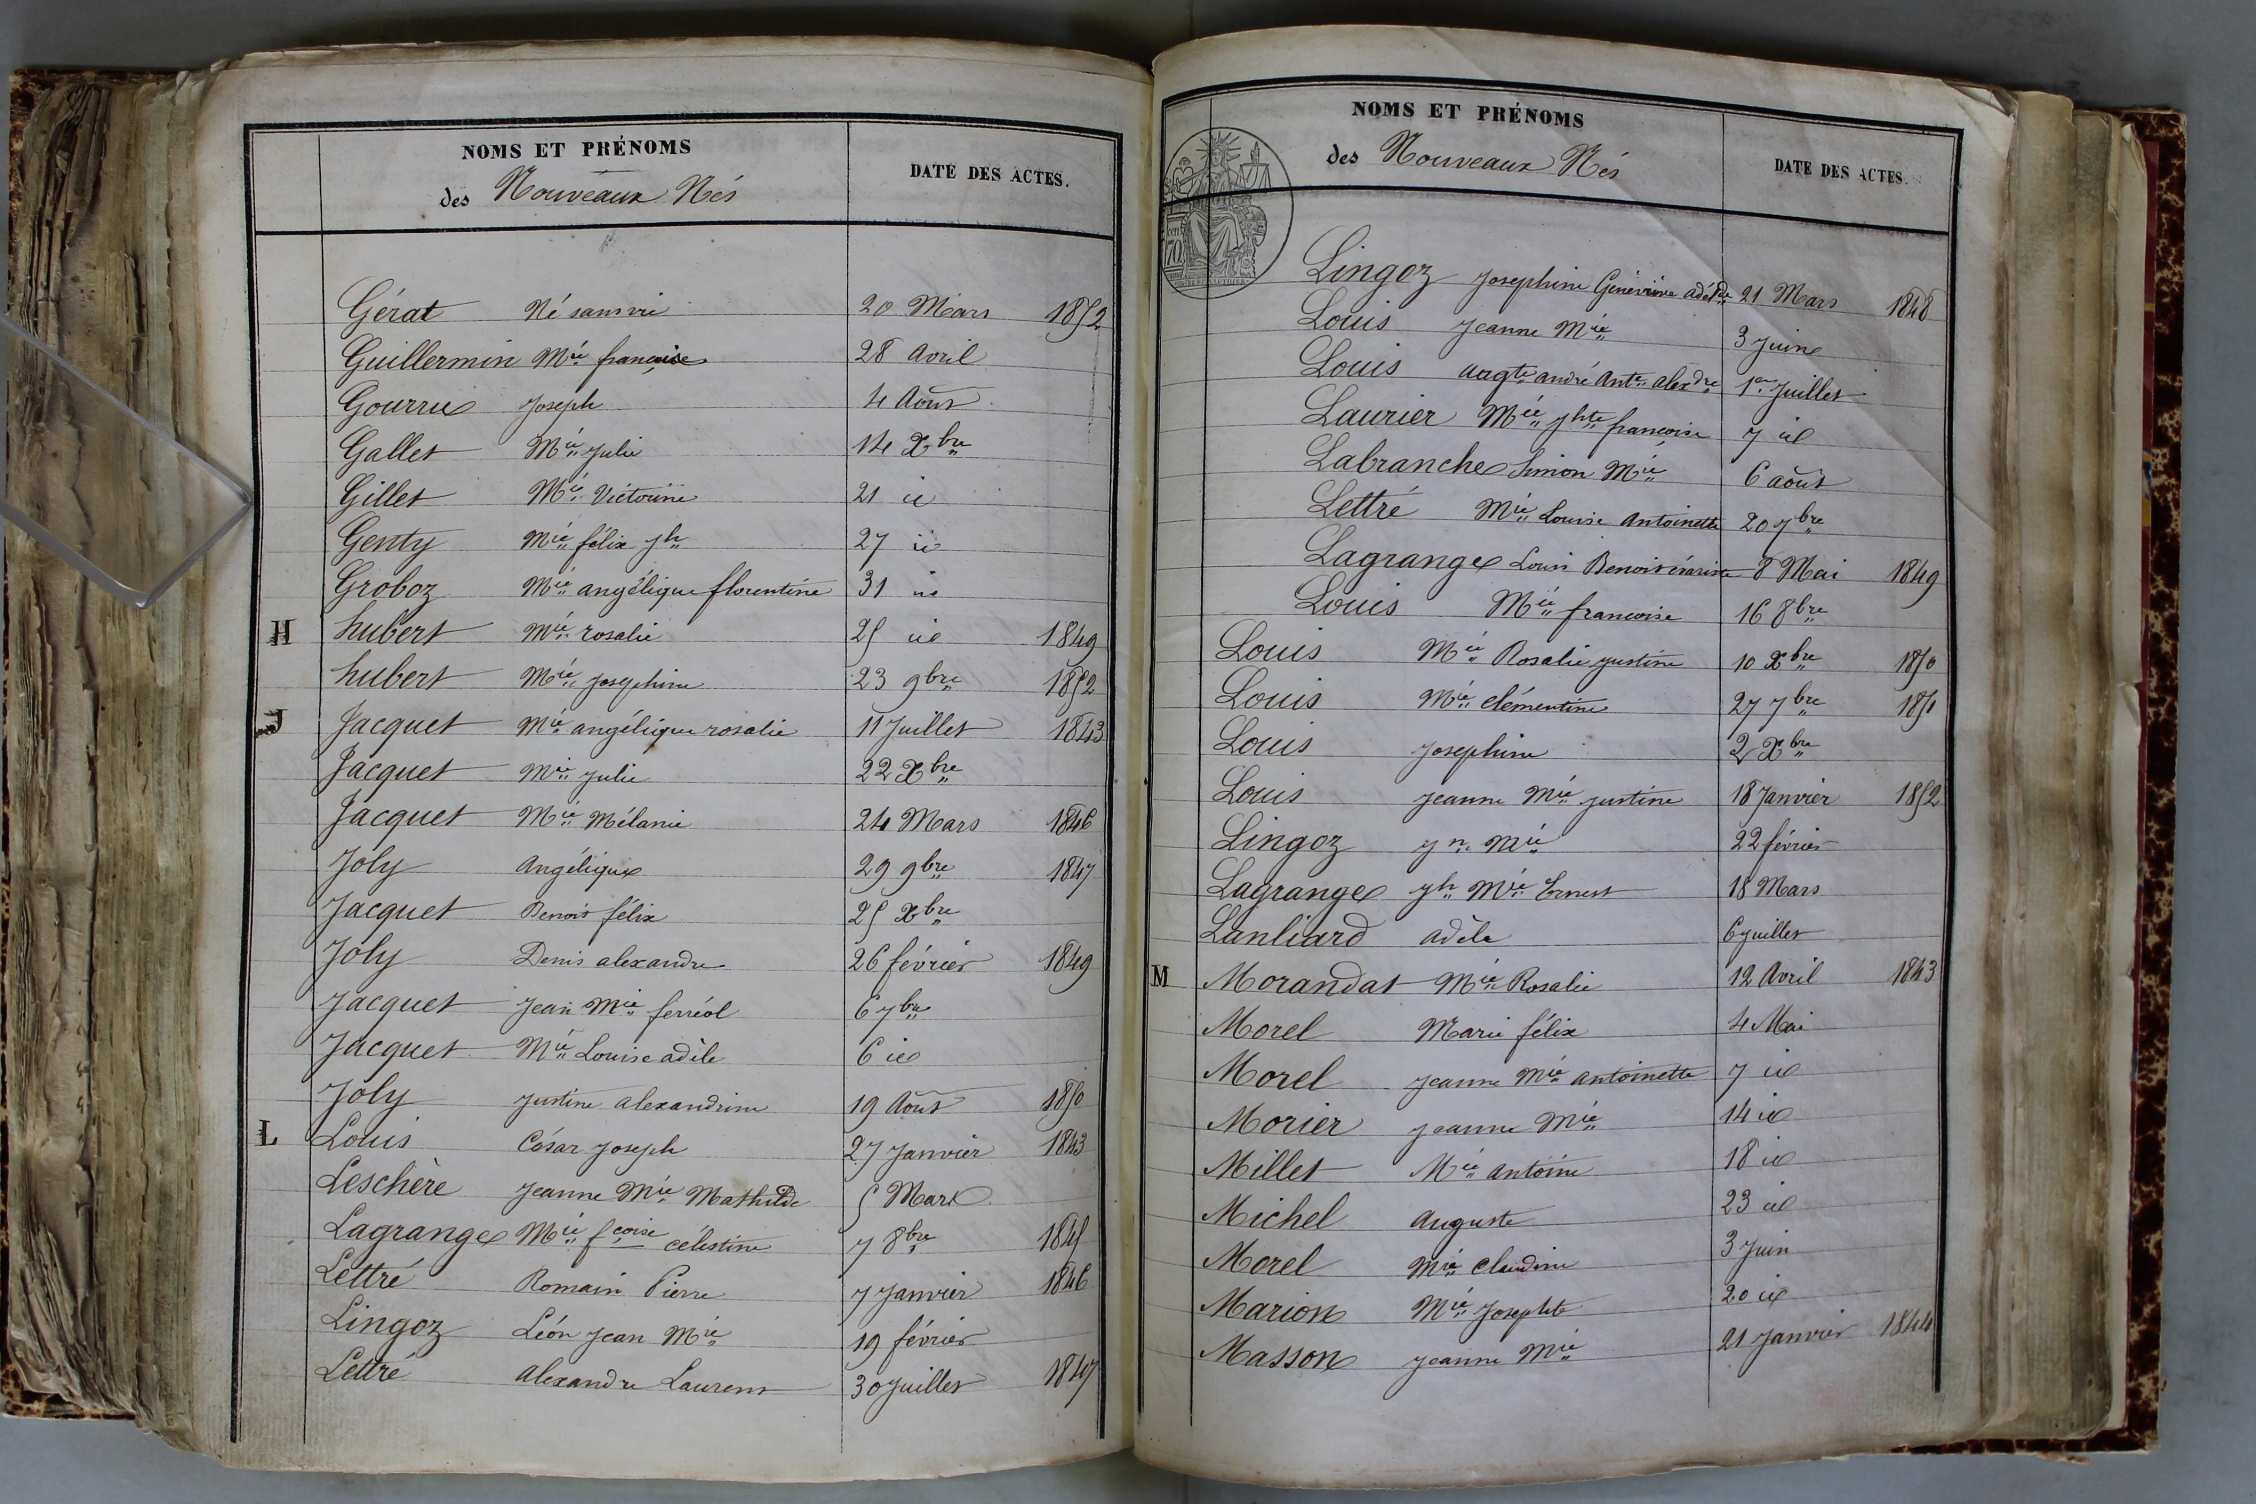 NOMS ET PRÉNOMS
des Nouveaux Nés
DATE DES ACTES.
Gérat Né sans vie 20 Mars 1852
Guillermin Mie françoise 28 Avril
Gourru Joseph 4 Août
Gallet Mie Julie 14 Xbre
Gillet Mie Victorine 21 id
Genty Mie félix Jh 27 id
Groboz Mie angélique florentine 31 id
H hubert Mie rosalie 25 id 1849
hubert Mie Josephine 23 9bre 1852
J Jacquet Mie angélique rosalie 11 Juillet 1843
Jacquet Mie Julie 22 Xbre
Jacquet Mie Mélanie 24 Mars 1846
Joly Angélique 29 9bre 1847
Jacquet Benoit félix 25 Xbre
Joly Denis alexandre 26 février 1849
Jacquet Jean Mie ferréol 6 7bre
Jacquet Mie Louise adèle 6 id
Joly Justine alexandrine 19 Août 1850
L Louis César Joseph 27 Janvier 1843
Leschère Jeanne Mie Mathilde 5 Mars
Lagrange Mie fçoise célestine 7 8bre 1845
Lettré Romain Pierre 7 Janvier 1846
Lingoz Léon Jean Mie 19 février
Lettré alexandre Laurent 30 Juillet 1847
NOMS ET PRÉNOMS
des Nouveaux Nés
DATE DES ACTES.
70
Lingoz Josephine Geneviève adélde 21 Mars 1848
Louis Jeanne Mie 3 Juin
Louis augte andré Ante alexdre 1er Juillet
Laurier Mie Jhte françoise 7 id
Labranche Simon Mie 6 août
Lettré Mie Louise Antoinette 20 7bre
Lagrange Louis Benoit évariste 8 Mai 1849
Louis Mie francoise 16 8bre
Louis Mie Rosalie Justine 10 Xbre 1850
Louis Mie clémentine 27 7bre 1851
Louis Josephine 2 Xbre
Louis Jeanne Mie Justine 18 Janvier 1852
Lingoz Jn Mie 22 février
Lagrange Jh Mie Ernest 18 Mars
Lanliard adèle 6 Juillet
M Morandat Mie Rosalie 12 Avril 1843
Morel Marie félix 4 Mai
Morel Jeanne Mie antoinette 7 id
Morier Jeanne Mie 14 id
Millet Mie antoine 18 id
Michel auguste 23 id
Morel Mie Claudine 3 Juin
Marion Mie Josephte 20 id
Masson Jeanne Mie 21 Janvier 1844